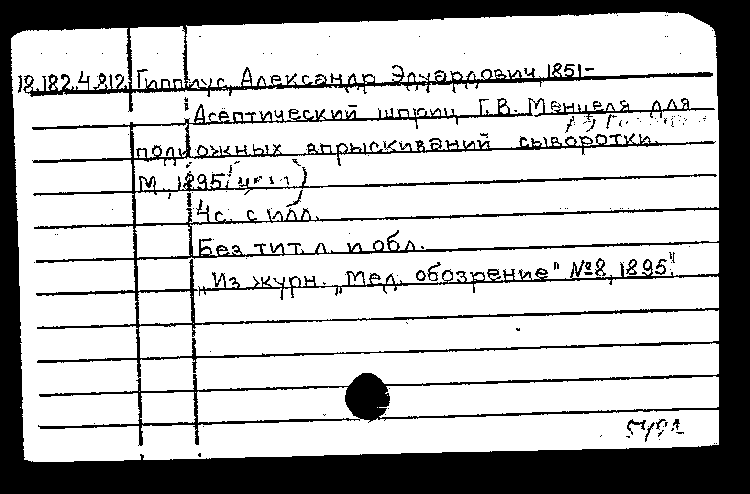 18.182.4.812 Гиппиус, Александр Эдуардович, 1851-
Асептический шприц Г.В. Менцеля для
подкожных впрыскиваний сыворотки.
М., 1895
4с. с илл.
Без тит. л. и обл.
„Из журн. „Мед. обозрение" №8, 1895"